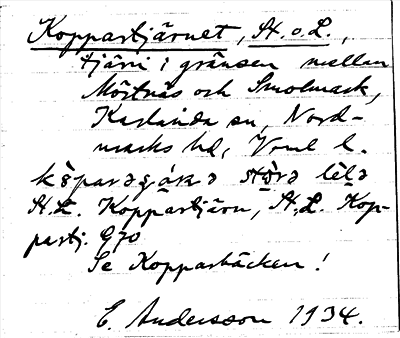 Koppartjärnet, St. o. L.,
tjärn i gränsen mellan
Mörtnäs och Smolmark,
Karlanda sn, Nord-
marks hd, Vrml l.
St. L. Koppartjärn, St. L. Kop-
partj. G70
Se Kopparbäcken!
E. Andersson 1934.